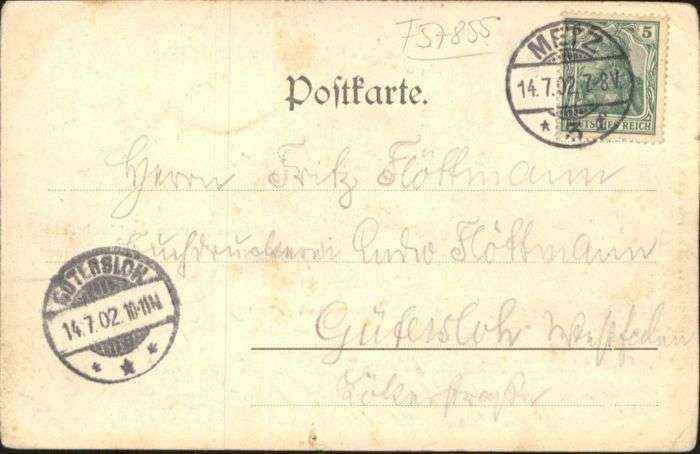 F57855
METZ
14.7.02.7-8V.
5
DEUTSCHES REICH
Postkarte.
Herrn Fritz Flöttmann
Buchdruckerei Flöttmann
Gütersloh Westfalen
GÜTERSLOH
14.7.02.10-11N
Lökerstraße